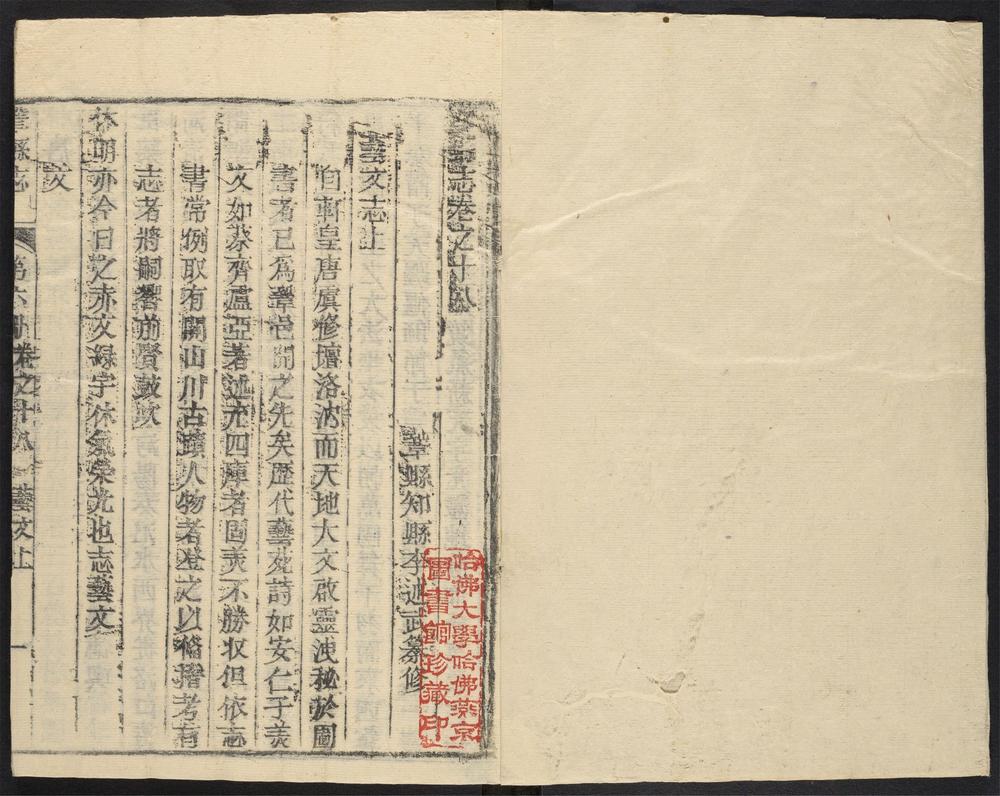 志卷之十八
鞏縣知縣李述武纂修
藝文志上
自軒皇唐虞修壇洛汭而天地大文啟靈洩秘於圖
書者已爲鞏邑開之先矣歷代藝苑詩如安仁子美
文如恭齊盧亞著述充四庫者固美不勝収但依志
書常例取有關山川古蹟人物者登之以備稽考有
志者將嗣響前賢鼓吹
休明亦今日之赤文綠字休氣榮光也志藝文
文
鞏縣志
卷之十八
藝文上
一
哈佛大學哈佛燕京
圖書館珍藏印